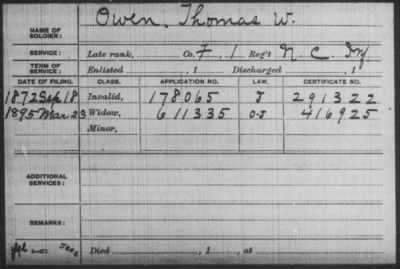 Owen, Thomas W.
NAME OF SOLDIER:
SERVICE: Late rank, Co. F, 1 Reg't N. C. Inf
TERM OF SERVICE: Enlisted , 1 Discharged , 1
DATE OF FILING. CLASS. APPLICATION NO. LAW. CERTIFICATE NO.
1872 Sep 18 Invalid, 178065 J 291322
1895 Mar 23 Widow, 611335 O-J 416925
Minor,
ADDITIONAL SERVICES:
REMARKS:
Died , 1 , at